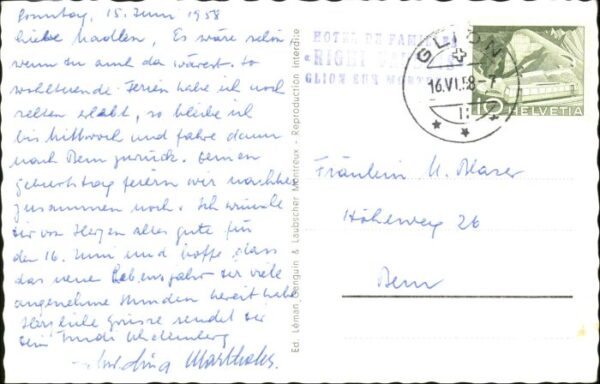 Sonntag, 15. Juni 1958
Liebe Madlen, Es wäre schön
wenn Du auch da wärest. So
wohltuende Ferien habe ich noch
selten erlebt, so bleibe ich
bis Mittwoch und fahre dann
nach Bern zurück. Deinen
Geburtstag feiern wir nachher
zusammen noch. Ich wünsche
Dir von Herzen alles gute für
den 16. Juni und hoffe, dass
das neue Lebensjahr Dir viele
angenehme Stunden bereit habe
Herzliche Grüsse sendet Dir
Dein
Marthaler.
Ed. Léman, Jenguin & Laubscher Montreux - Reproduction interdite
HOTEL DE FAMILLE
RIGHI VAUDOIS
GLION SUR MONTREUX
GLION
16.VI.58-7
10 HELVETIA
Fräulein M. Blaser
Höheweg 26
Bern